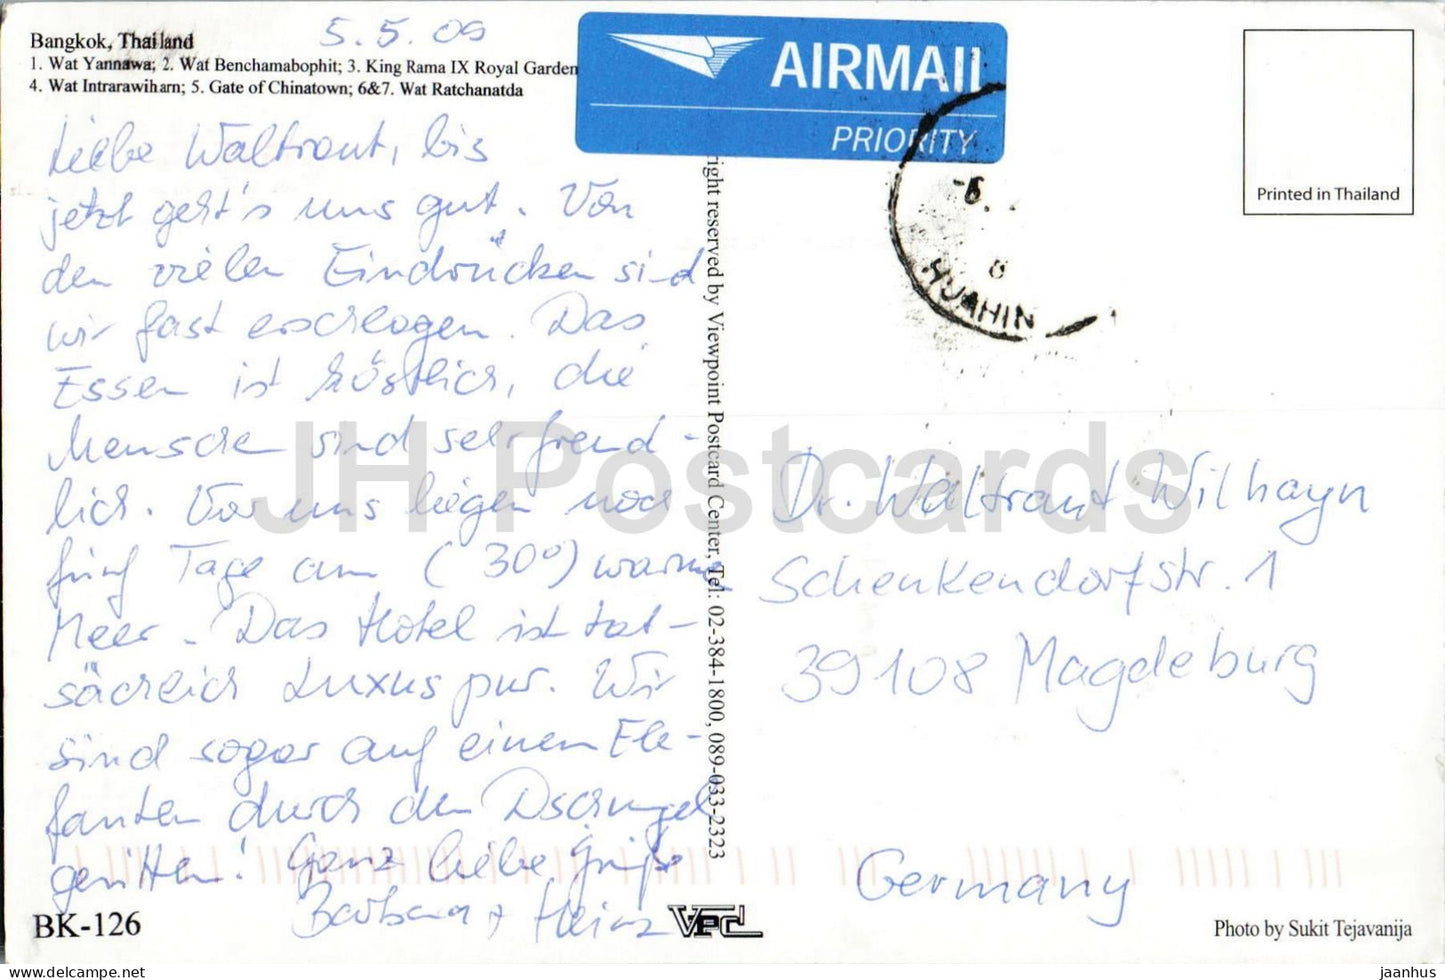 Bangkok, Thailand
5.5.09
1. Wat Yannawa; 2. Wat Benchamabophit; 3. King Rama IX Royal Garden
4. Wat Intrarawiharn; 5. Gate of Chinatown; 6&7. Wat Ratchanatda
AIRMAIL
PRIORITY
Printed in Thailand
HUAHIN
Liebe Waltraut, bis
jetzt geht's uns gut. Von
den vielen Eindrücken sind
wir fast erschlagen. Das
Essen ist köstlich, die
Menschen sind sehr freund-
lich. Vor uns liegen noch
fünf Tage am (30°) warmen
Meer. Das Hotel ist tat-
sächlich Luxus pur. Wir
sind sogar auf einem Ele-
fanten durch den Dschungel
geritten! Ganz liebe Grüße
Barbara + Heinz
right reserved by Viewpoint Postcard Center, Tel: 02-384-1800, 089-033-2323
Dr. Waltraut Wilhayn
Schenkendorfstr. 1
39108 Magdeburg
Germany
BK-126
VPC
Photo by Sukit Tejavanija
JH Postcards
jaanhus @ delcampe.net